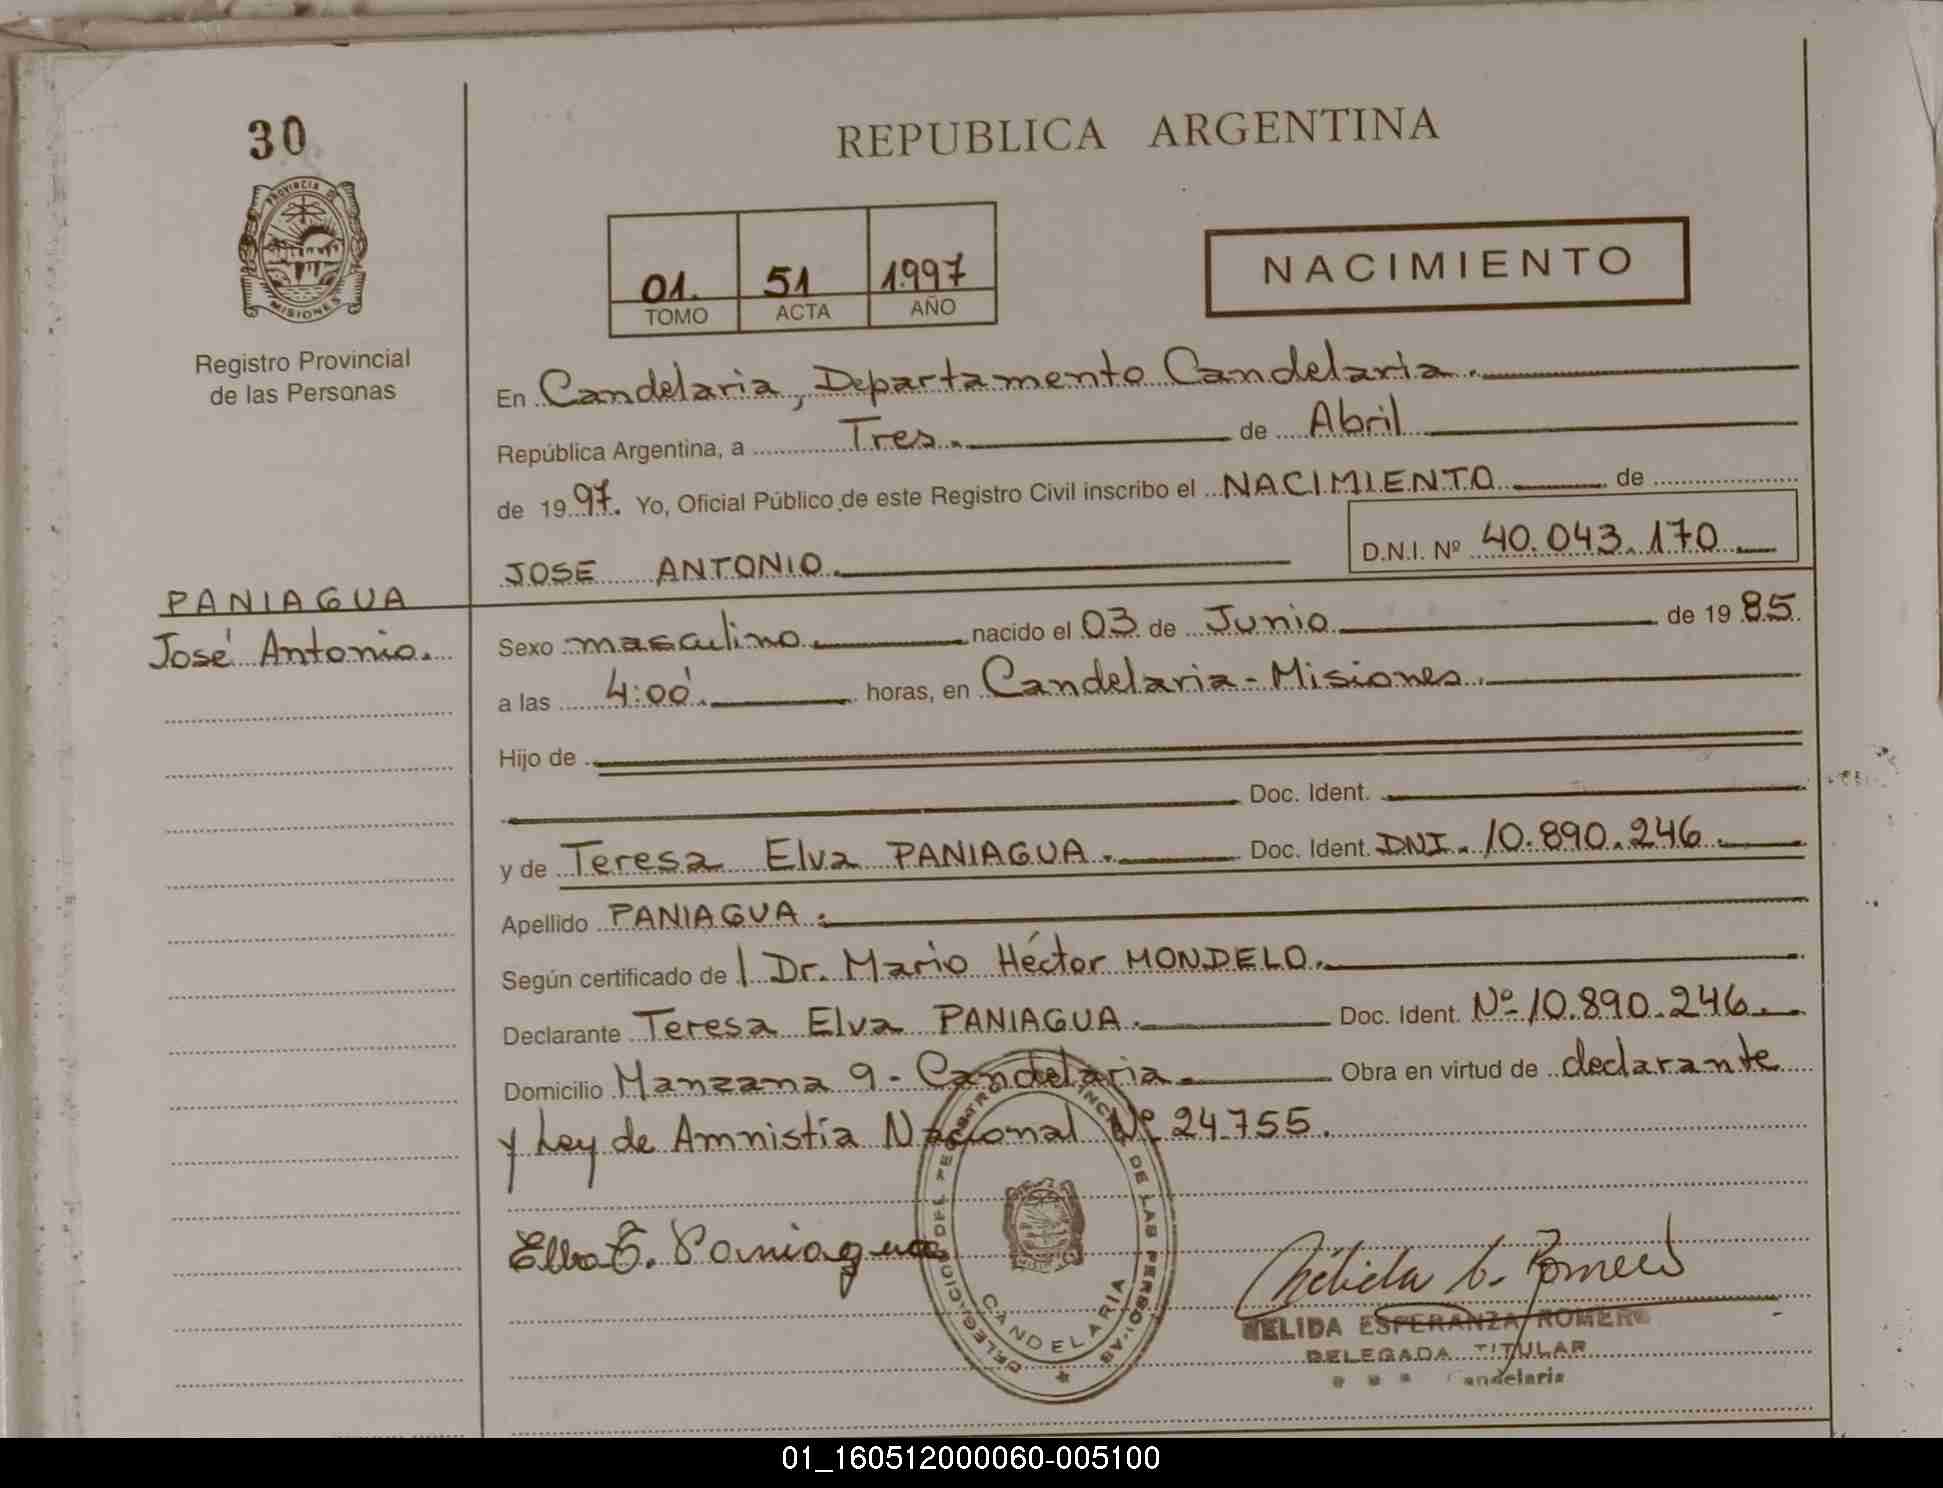 30
PROVINCIA DE
MISIONES
Registro Provincial
de las Personas
PANIAGUA
José Antonio.
REPUBLICA ARGENTINA
01. 51 1997
TOMO ACTA AÑO
NACIMIENTO
En Candelaria, Departamento Candelaria.
República Argentina, a Tres. de Abril
de 1997. Yo, Oficial Público de este Registro Civil inscribo el NACIMIENTO de
JOSE ANTONIO. D.N.I. Nº 40.043.170
Sexo masculino nacido el 03 de Junio de 1985.
a las 4:00'. horas, en Candelaria - Misiones.
Hijo de
Doc. Ident.
y de Teresa Elva PANIAGUA. Doc. Ident. DNI. 10.890.246.
Apellido PANIAGUA.
Según certificado de Dr. Mario Héctor MONDELO.
Declarante Teresa Elva PANIAGUA. Doc. Ident. Nº 10.890.246.
Domicilio Manzana 9 - Candelaria. Obra en virtud de declarante
y Ley de Amnistía Nacional Nº 24.755.
Elba T. Paniagua
DELEGACION DEL REGISTRO PROVINCIAL DE LAS PERSONAS
CANDELARIA
Nélida E. Romero
NELIDA ESPERANZA ROMERO
DELEGADA TITULAR
Candelaria
01_160512000060-005100